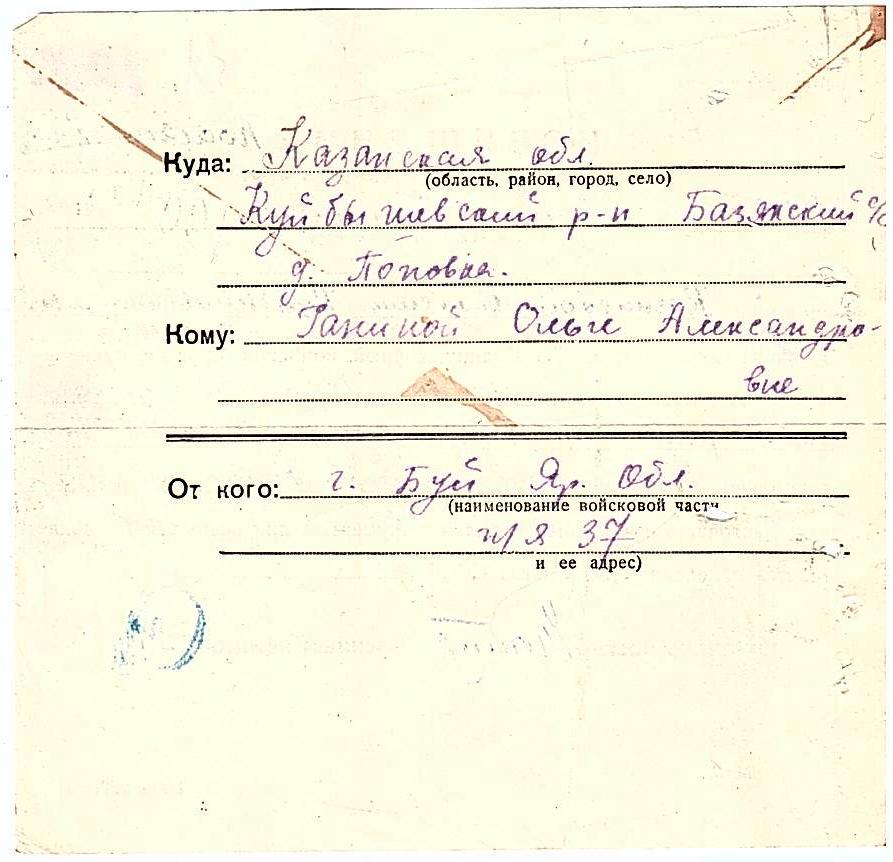 Куда: Казанская обл.
(область, район, город, село)
Куйбышевский р-н Базянский с/с
д. Поповка.
Кому: Ганиной Ольге Александро-
вне
От кого: г. Буй Яр. Обл.
(наименование войсковой части
п/я 37
и ее адрес)